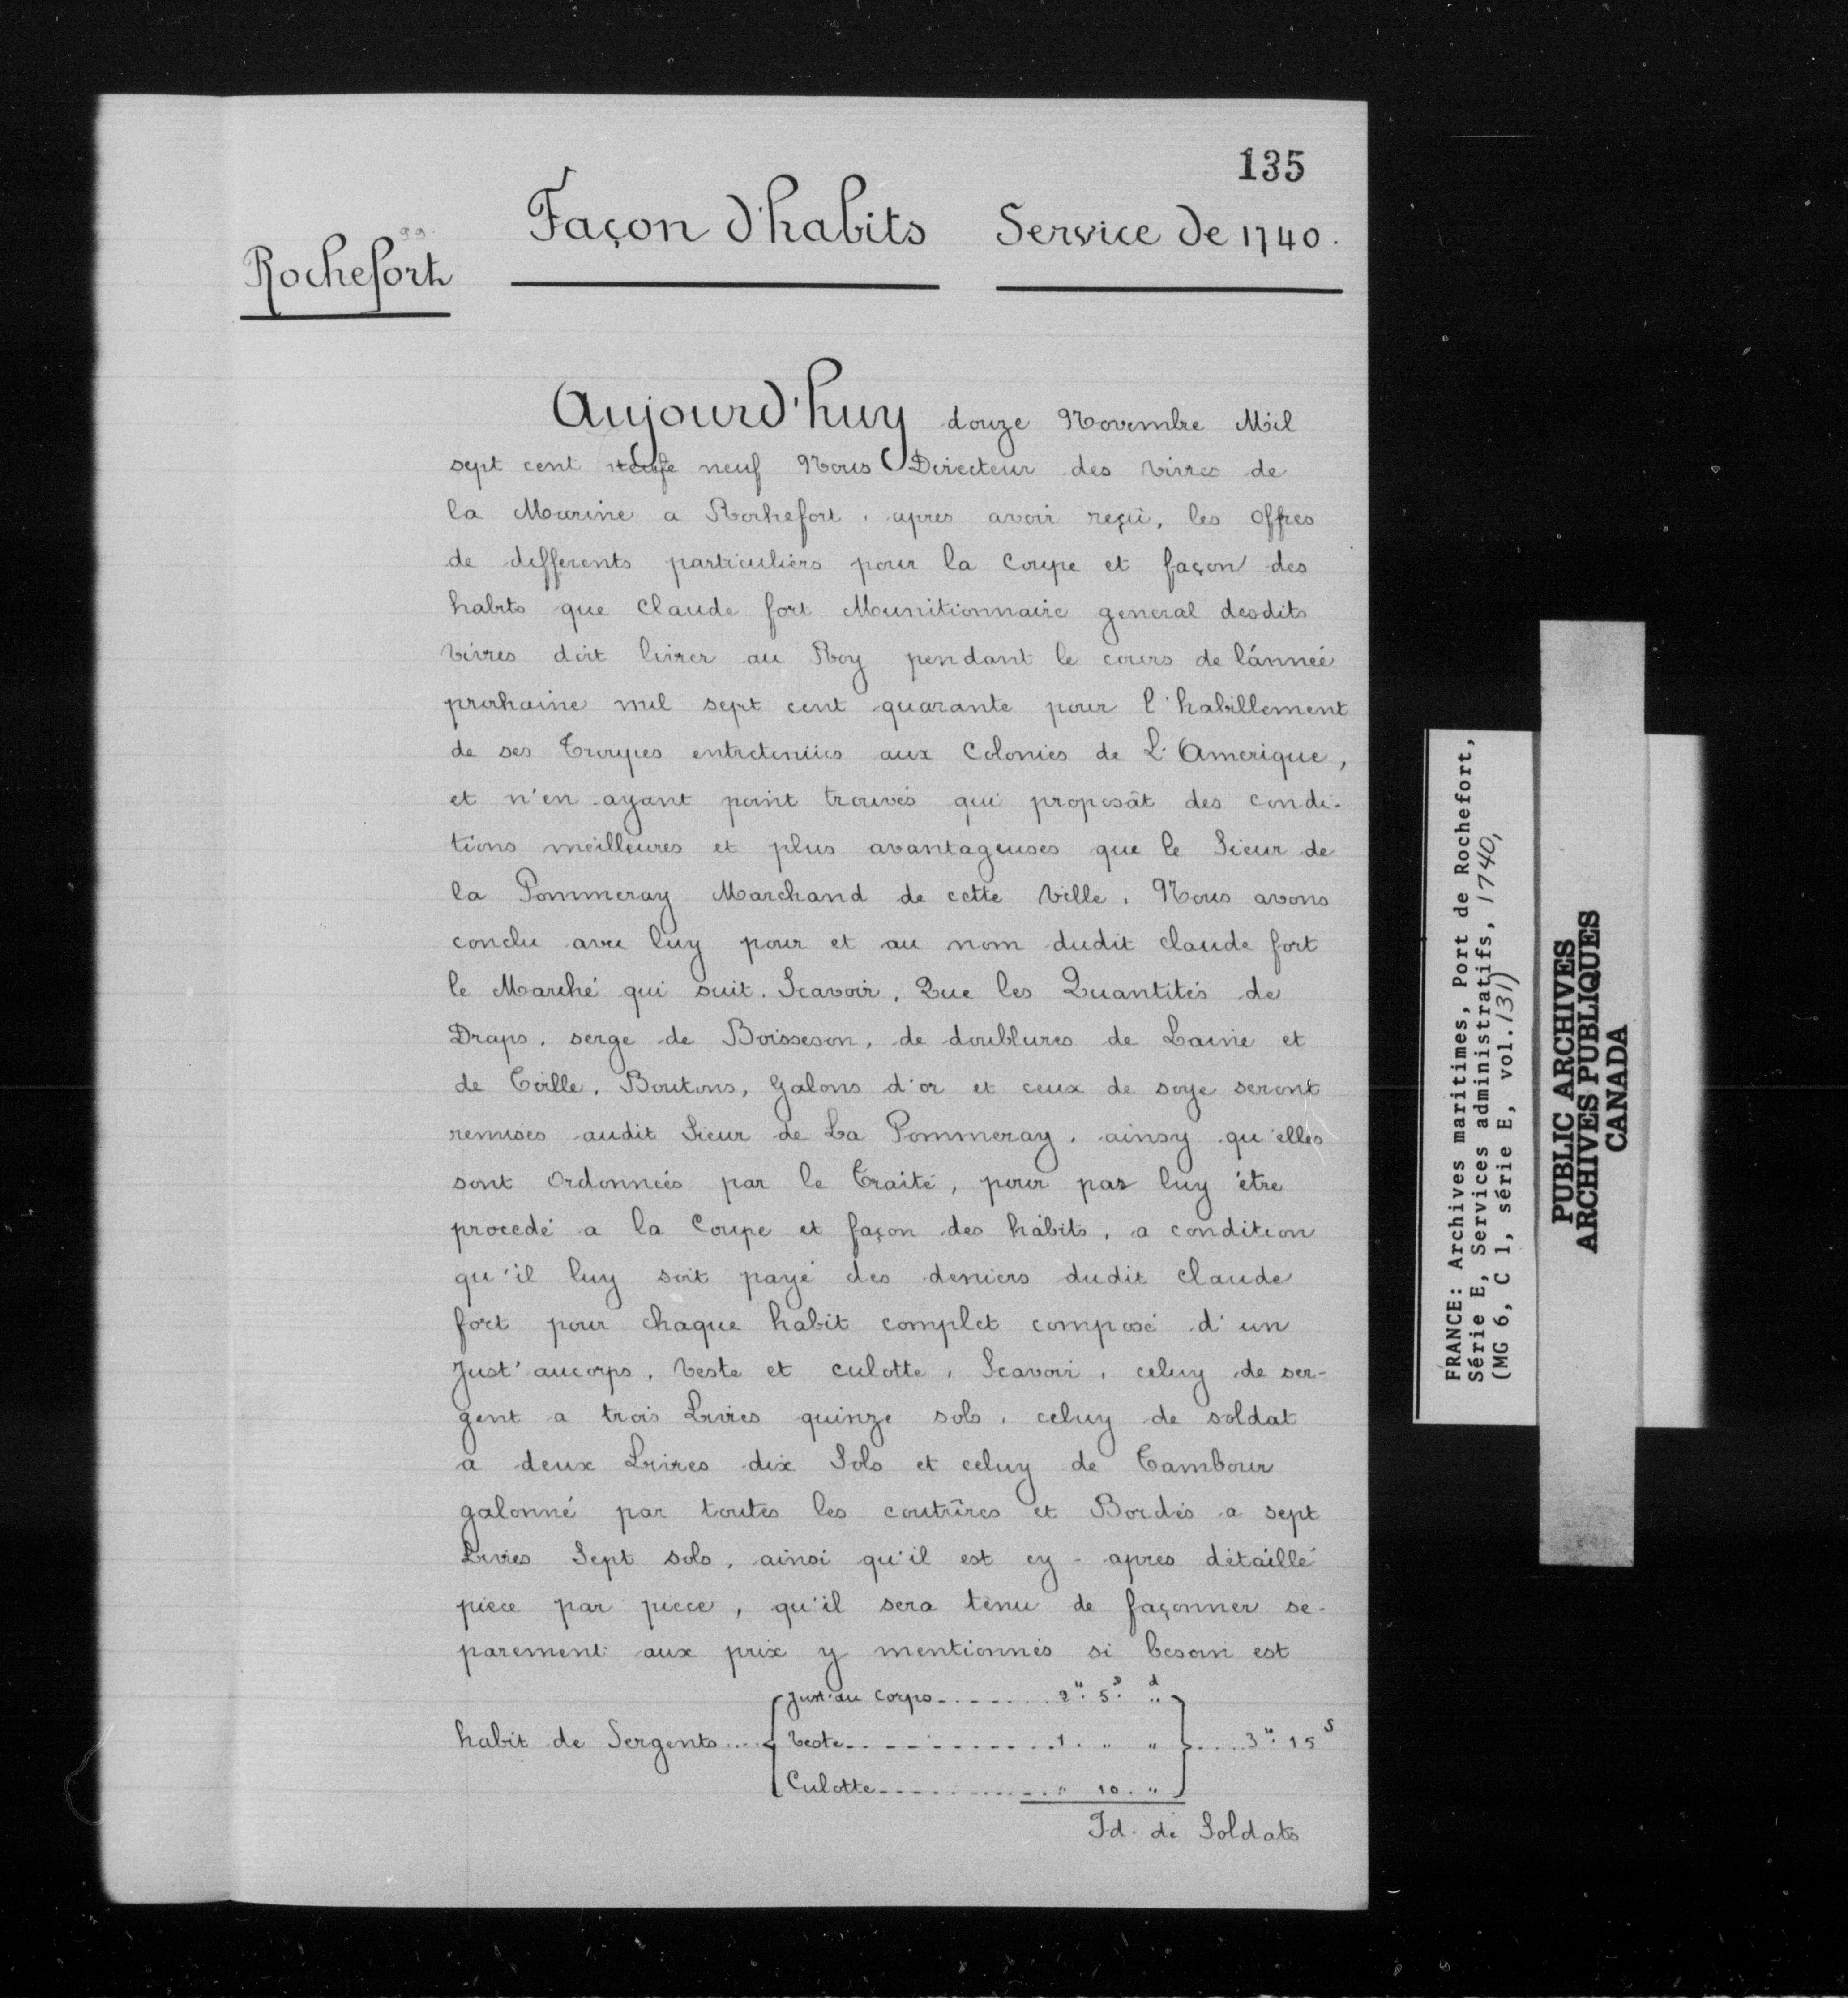 135
Façon d'habits Service de 1740.
99.
Rochefort
Aujourd'huy douze Novembre Mil
sept cent neuf Nous Directeur des vivres de
la Marine a Rochefort, apres avoir reçû, les offres
de differents particuliers pour la Coupe et façon des
habits que Claude fort Munitionnaire general desdits
vivres doit livrer au Roy pendant le cours de l'année
prochaine mil sept cent quarante pour l'habillement
de ses Troupes entretenües aux Colonies de L'Amerique,
et n'en ayant point trouvés qui proposât des condi-
tions meilleures et plus avantageuses que le Sieur de
la Pommeray Marchand de cette ville. Nous avons
conclu avec luy pour et au nom dudit claude fort
le Marché qui suit. Scavoir, Que les Quantités de
Draps, serge de Boisseson, de doublures de Laine et
de Toille, Boutons, galons d'or et ceux de soye seront
remises audit Sieur de La Pommeray, ainsy qu'elles
sont Ordonnées par le Traité, pour par luy étre
procedé a la Coupe et façon des habits, a condition
qu'il luy soit payé des deniers dudit claude
fort pour chaque habit complet composé d'un
Just'aucorps, veste et culotte, Scavoir, celuy de ser-
gent a trois Livres quinze sols, celuy de soldat
a deux Livres dix Sols et celuy de Tambour
galonné par toutes les coutûres et Bordés a sept
Livres Sept sols, ainsi qu'il est cy-apres détaillé
piece par piece, qu'il sera tenu de façonner se-
parement aux prix y mentionnés si besoin est
Just'au Corps........2" 5s. "d
habit de Sergents.... veste............1. " " ....3" 15s
Culotte............" 10. "
Id. de Soldats
FRANCE: Archives maritimes, Port de Rochefort,
Série E, Services administratifs, 1740,
(MG 6, C 1, série E, vol. 131)
PUBLIC ARCHIVES
ARCHIVES PUBLIQUES
CANADA